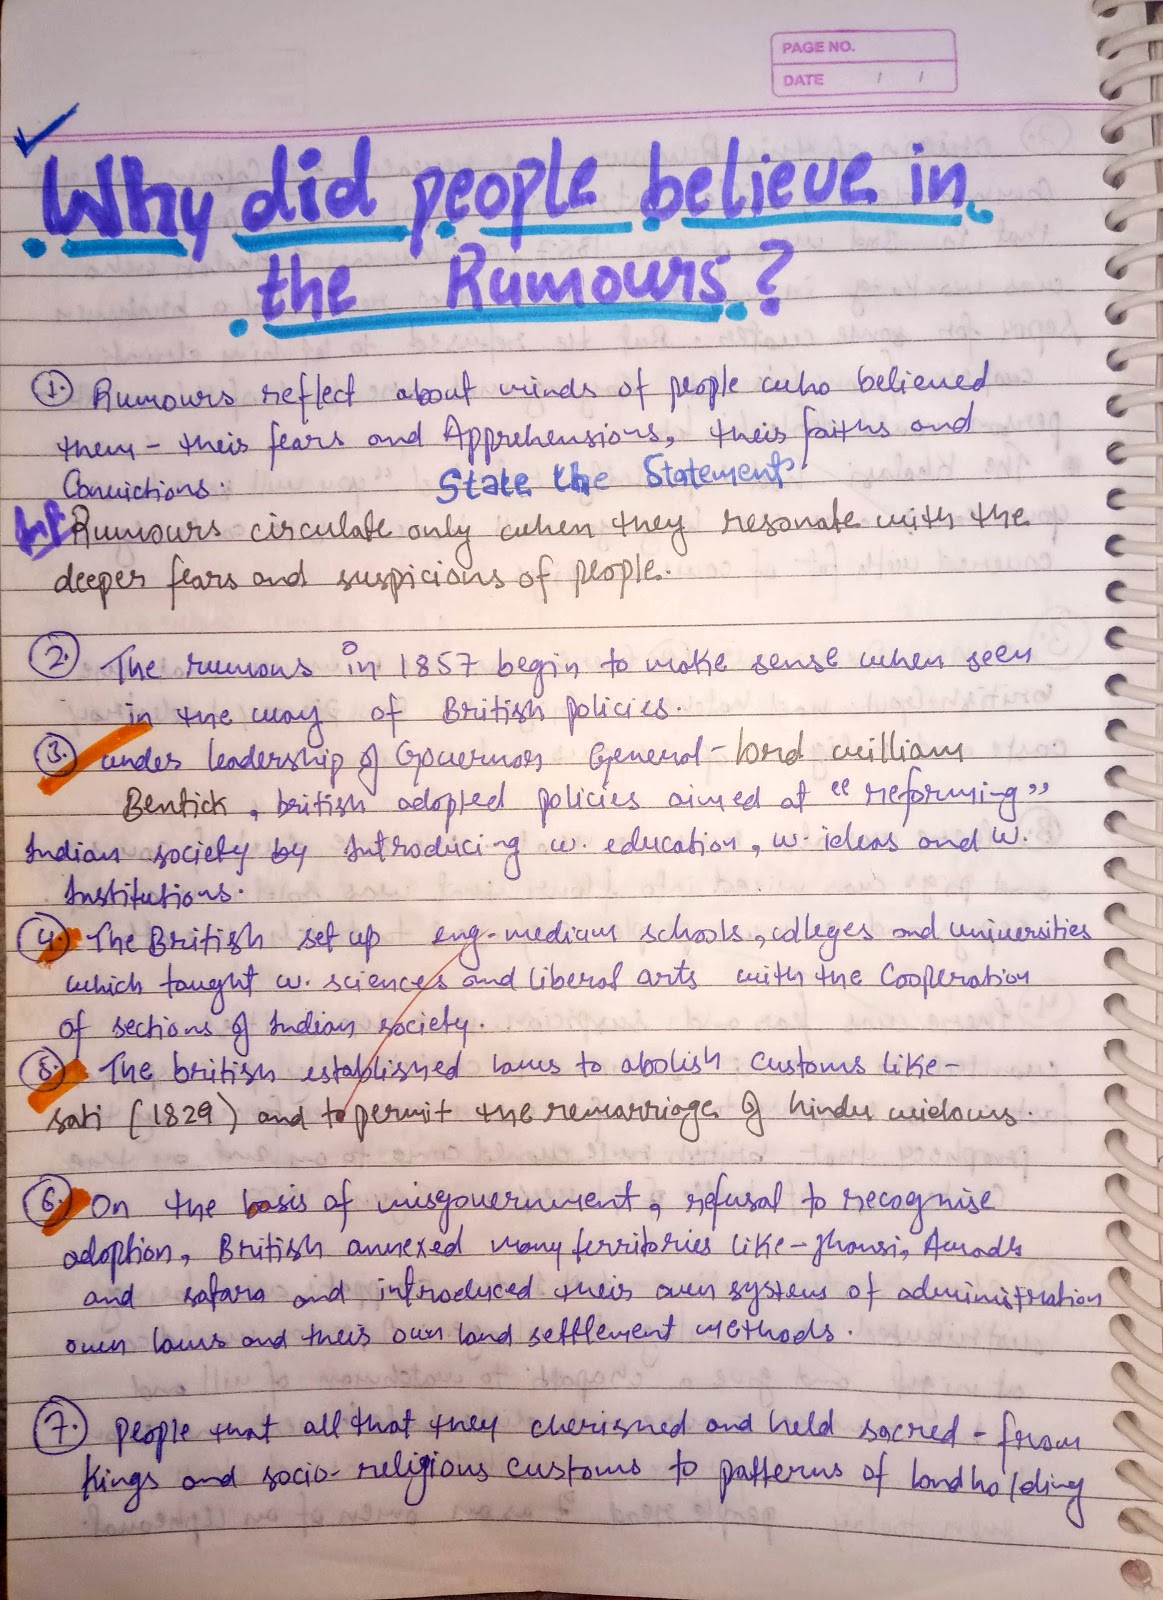 PAGE NO.
DATE / /
Why did people believe in
the Rumours?
1. Rumours reflect about minds of people who believed
them - their fears and Apprehensions, their faiths and
Convictions.
State the Statement
Rumours circulate only when they resonate with the
deeper fears and suspicions of people.
2. The rumous in 1857 begin to make sense when seen
in the way of British policies.
3. under leadership of Governor General - lord william
Bentick, british adopted policies aimed at "reforming"
Indian society by Introducing w. education, w. ideas and w.
Institutions.
4. The British set up eng-medium schools, colleges and universities
which taught w. sciences and liberal arts with the Cooperation
of sections of Indian society.
5. The british established laws to abolish customs like -
sati (1829) and to permit the remarriage of hindu widows.
6. On the basis of misgovernment, refusal to recognise
adoption, British annexed many territories like - Jhansi, Awadh
and satara and introduced their own system of administration
own laws and their own land settlement methods.
7. people that all that they cherished and held sacred - from
kings and socio-religious customs to patterns of landholding